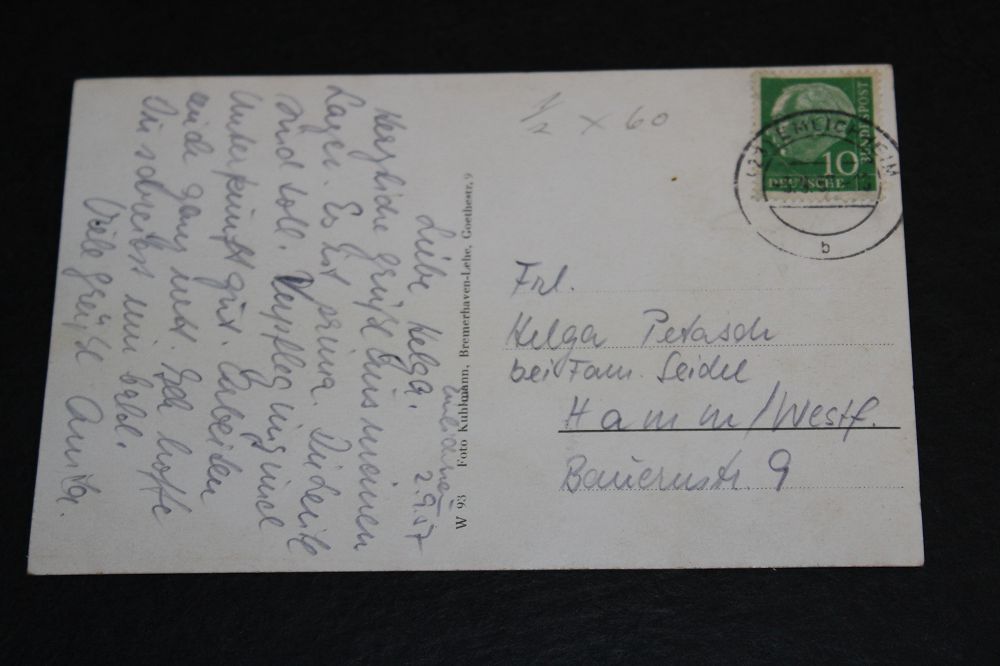 Emlichheim
2.9.57
Liebe Helga.
Herzliche Grüße aus meinem
Lager. Es ist prima. Die Leute
sind toll. Verpflegung und
Unterkunft gut. Arbeiten
auch ganz nett. Ich hoffe
Du schreibst mir bald.
Viele Grüße Anita.
W 93 Foto Kuhlmann, Bremerhaven-Lehe, Goethestr. 9
1/2 x 60
10
DEUTSCHE
BUNDESPOST
EMLICHHEIM
b
Frl.
Helga Petasch
bei Fam. Seidel
Hamm/Westf.
Bauernstr. 9